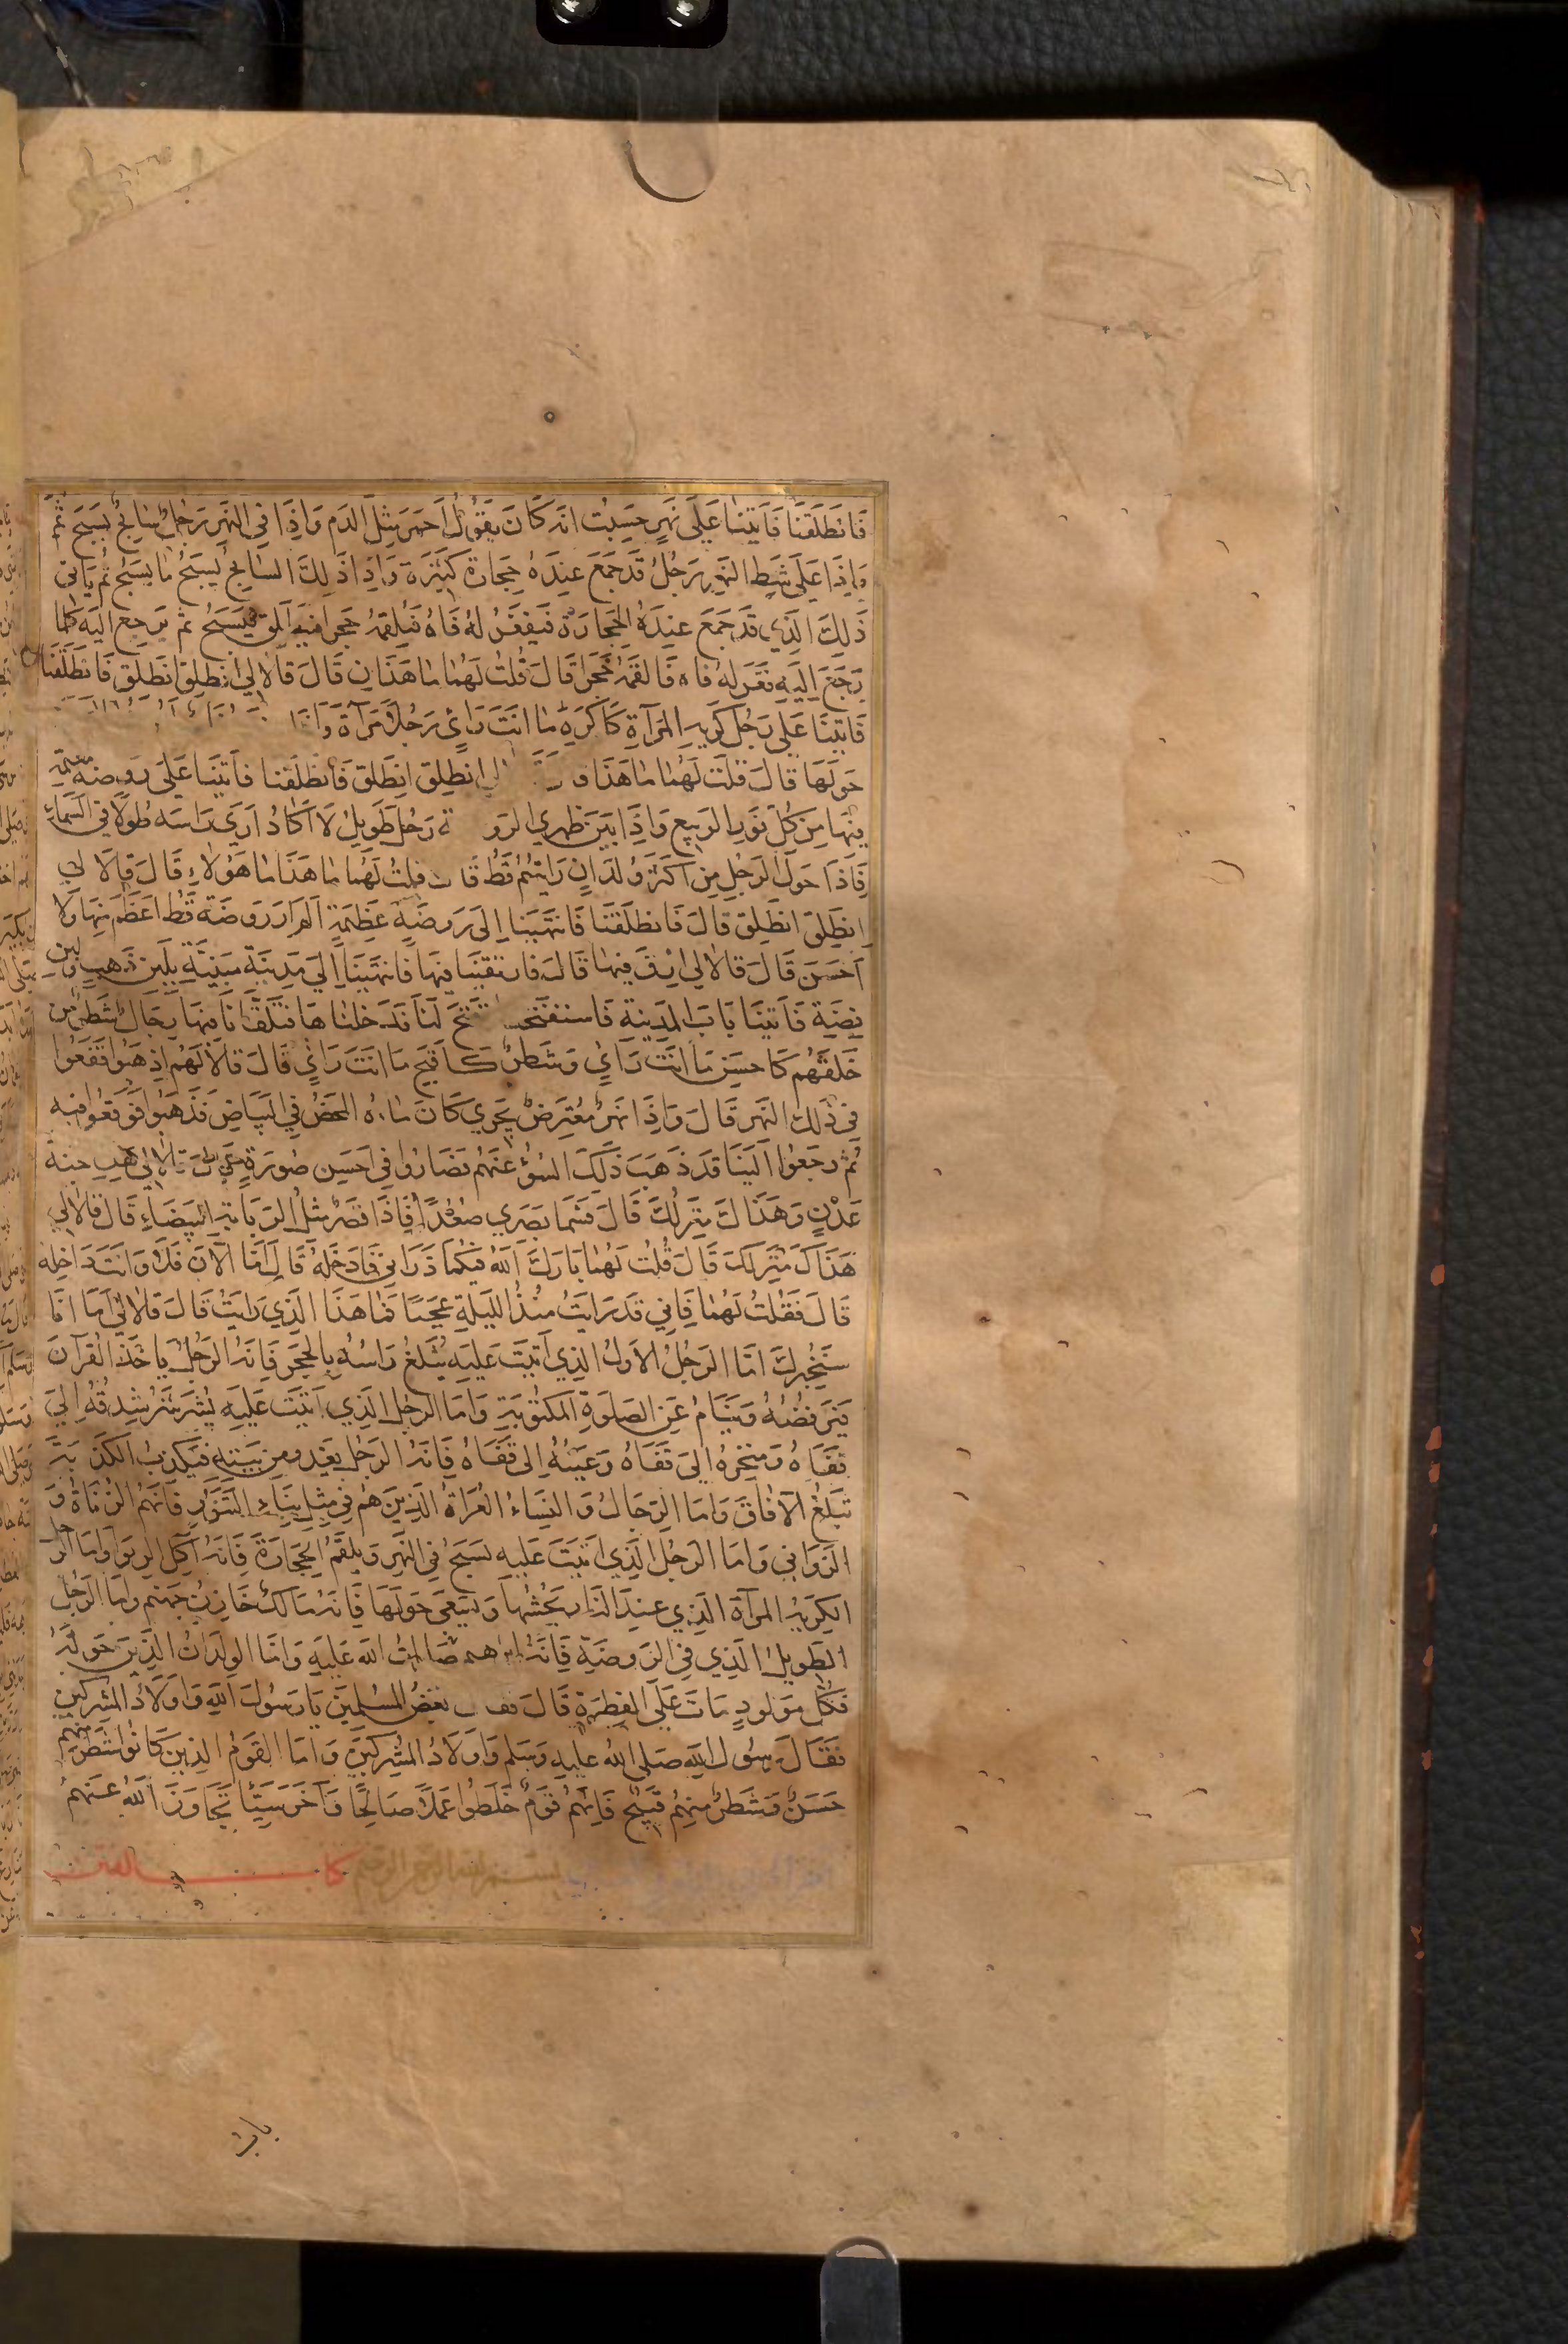 فَانطَلَقنَا فَاَتَينَا عَلَى نَهَرٍ حَسِبتُ انَّه كَانَ يَقُولُ اَحمَرَ مِثلَ الدَمِ وَاِذَا فِي النَهَرِ رَجُلٌ سَابِحٌ يَسبَحُ ثُمَّ
وَاِذَا عَلَى شَطِ النَهَرِ رَجُلٌ قَد جَمَعَ عِندَهُ حِجَارَة كَثِيرَة وَاِذَا ذَلِكَ السَابِحُ يَسبَحُ مَا يَسبَحُ ثُم يَاتي
ذَلِكَ الَذِي قَد جَمَعَ عِندَهُ الحِجَارَةَ فَيَفغَرُ لَهُ فَاهُ فَيُلقِمُهُ حَجَرا فَيَسبَحُ ثُم يَرجِع اليَه كُلَمَا
رَجَعَ اِلَيهِ فَغَرَ لهُ فَاه فَالقَمَهُ حَجَرا قَالَ قُلتُ لَهُمَا مَا هَذَانِ قَالَ قَالَا لِي انطَلِق انطَلِق فَانطَلَقنَا
فَاتَينَا عَلَى رَجُل كَرِيهِ المَرآةِ كَاَكرَهِ مَا انتَ رَاءٍ رَجُلًا مَرآةً وَاذَا
حَولَهَا قَالَ قُلتُ لَهُمَا مَا هَذَا انطَلِق انطَلِق فَانطَلَقنا فَاتَينَا عَلَى رَوضَة مُعتَمة
فِيهَا مِن كُلِ نَورِ الرَبِيعِ وَاِذَا بَينَ ظَهرَيِ رَجُل طَوِيلٌ لَا اَكَادُ اَرَى رَاسَه طُولًا فِي السَمَاءِ
فَاِذَا حَولَ الرَجُلِ مِن اكثَرِ وُلدَانٍ رَايتهُم قَطُ قُلتُ لَهُمَا مَا هَذَا مَا هَؤُلاءِ قَالَ قَالَا لِي
اِنطَلِق انطَلِق قَالَ فَانطَلَقنَا فَانتَهَينَا اِلَى رَوضَةٍ عَظِيمَةٍ لَم اَرَ رَوضَة قَطُ اعظَمَ مِنهَا وَلَا
اَحسَنَ قَالَ قَالَا لِي ارقَ فِيهَا قَالَ فَارتَقَينَا فِيهَا فَانتَهَينَا اِلَى مَدِينَة مَبنِيَّةٍ بِلَبِنِ ذَهَبٍ وَلَبِن
فِضَّةٍ فَاَتَينَا بَابَ المَدِينَة فَاستَفتَحنا فَفُتحَ لَنَا فَدَخَلنَاهَا فَتَلَقَّانَا فِيهَا رِجَالٌ شَطرٌ مِن
خَلقِهُم كَاحسَنِ مَا انتَ رَاءٍ وَشَطرٌ كَاقبَحِ مَا انتَ رَاءٍ قَالَ قَالَا لَهُم اذهَبُوا فَقَعُوا
فِي ذَلِكَ النَهَر قَالَ وَاِذَا نَهَرٌ مُعتَرِضٌ يَجرِي كَانَ مَاءهُ المَحضُ فِي البَيَاضِ فَذَهَبُوا فَوَقَعُوا فِيه
ثُمَّ رَجَعُوا اِلَينَا قَد ذَهَبَ ذَلِكَ السُوءُ عَنهُم فَصَارُوا فِي اَحسَنِ صُورَةٍ قَالَ قَالَا لِي هَذِهِ جَنَّةُ
عَدْنٍ وَهَذَاكَ مَنزِلُكَ قَالَ فَسَمَا بَصَرِي صُعُدًا فَاِذَا قَصرٌ مِثلُ الرَبَابَةِ البَيضَاءِ قَالَ قَالَا لِي
هَذَاكَ مَنزِلُكَ قَالَ قُلتُ لَهُمَا بَارَكَ اللَهُ فِيكُمَا ذَرَانِي فَادخُلَهُ قَالَا اَمَّا الآنَ فَلَا وَانتَ دَاخِلُه
قَالَ فَقُلتُ لَهُمَا فَاِنِي قَد رَايتُ مُنذُ اللَيلَةِ عَجَبًا فَمَا هَذَا الَذِي رَايتُ قَالَ قَالَا لِي اَمَا اِنَّا
سَنُخبِرُكَ امَّا الرَجُلُ الاَوَلُ الذِي اَتَيتَ عَلَيهِ يُثلَغُ رَاسُهُ بِالحَجَرِ فَاِنَهُ الرَجُلُ يَاخُذُ القُرآنَ
فَيَرفُضُهُ وَيَنَامُ عَنِ الصَلَوةِ المَكتُوبَةِ وَامَا الرَجُل الذِي اَتَيتَ عَلَيهِ يُشَرشَرُ شِدقُهُ اِلَى
قَفَاهُ وَمَنخِرُهُ اِلَى قَفَاهُ وَعَينُهُ اِلى قَفَاهُ فَاِنَهُ الرَجُل يَغدُو مِن بَيتِهِ فَيَكذِبُ الكَذبَةَ
تَبلُغُ الآفَاقَ وَامَا الرِجَالُ وَالنِسَاءُ العُرَاةُ الَذِينَ هُم فِي مِثلِ بِنَاءِ التَنُّورِ فَاِنَهُمُ الزُنَاةُ وَ
الزَوَانِي وَامَا الرَجُلُ الَذِي اتَيتَ عَلَيه يَسبَحُ فِي النَهَرِ وَيُلقَمُ الحِجَارَةَ فَاِنَهُ آكِلُ الرِبَوا وَامَا الرجل
الكَرِيهُ المَرآةِ الَذِي عِندَ النَارِ يَحُشُهَا وَيَسعَى حَولَهَا فَاِنَهُ مَالكٌ خَازِنُ جَهَنَم وَامَا الرَجُل
الطَوِيلُ الَذِي فِي الرَوضَةِ فَاِنَهُ ابرهيم صَلَواتُ اللَه عَلَيهِ وَامَّا الوِلدَانُ الَذِينَ حَولَهُ
فَكُلُ مَولُودٍ مَاتَ عَلَى الفِطرَةِ قَالَ فقَالَ بَعضُ المُسلِمِينَ يَا رَسُولَ اللَهِ وَاَولَادُ المُشرِكِين
فَقَالَ رَسُول اللَهِ صَلى اللَهُ عَلَيهِ وَسَلم وَاَولَادُ المُشرِكِينَ وَامَا القَومُ الَذِينَ كَانُوا شَطرٌ مِنهُم
حَسَنٌ وَشَطرٌ مِنهُم قَبِيحٌ فَاِنَهُم قَومٌ خَلَطُوا عَمَلًا صَالِحًا وَآخَرَ سَيِّئًا تَجَاوَزَ اللَهُ عَنهُم
بسم الله الرحمن الرحيم كتاب الفتن
باب